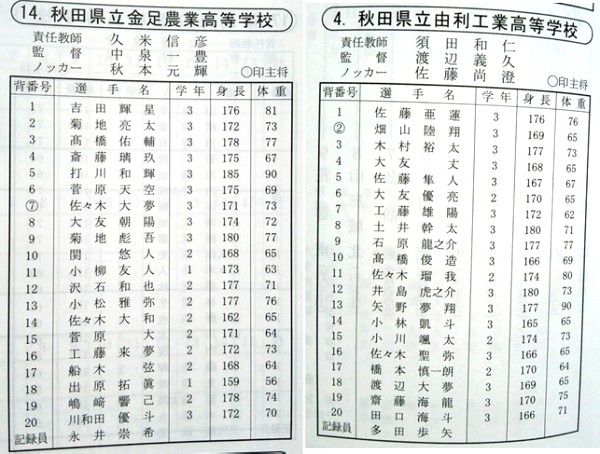 14. 秋田県立金足農業高等学校
責任教師 久米信彦
監督 中泉一豊
ノッカー 秋本元輝 〇印主将
背番号 選手名 学年 身長 体重
1 吉田輝星 3 176 81
2 菊地亮太 3 172 73
3 髙橋佑輔 3 178 77
4 斎藤璃玖 3 175 67
5 打川和輝 3 185 90
6 菅原天空 3 175 69
⑦ 佐々木大夢 3 171 73
8 大友朝陽 3 174 72
9 菊地彪吾 3 180 77
10 関悠人 2 168 65
11 小柳友人 1 173 63
12 沢石和也 2 177 71
13 小松雅弥 2 177 76
14 佐々木大和 2 162 65
15 菅原大 2 171 64
16 工藤来夢 2 172 73
17 船木弦 2 168 64
18 出原拓眞 1 159 56
19 嶋﨑響己 2 178 74
20 川和田優斗 3 172 70
記録員 永井崇希
4. 秋田県立由利工業高等学校
責任教師 須田和仁
監督 渡辺義久
ノッカー 佐藤尚澄 〇印主将
背番号 選手名 学年 身長 体重
1 佐藤亜蓮 3 176 76
② 畑山陸翔 3 169 65
3 木村裕太 3 177 73
4 大友丈 3 168 65
5 佐藤隼人 3 167 67
6 大友優亮 2 170 65
7 工藤雄陽 3 172 62
8 土井幹太 3 180 71
9 石原龍之介 3 177 77
10 髙橋俊造 3 166 69
11 佐々木瑠我 2 174 80
12 井島虎之介 3 180 73
13 矢野夢翔 3 177 90
14 小林凱斗 3 165 65
15 小川颯太 2 174 65
16 佐々木聖弥 3 166 65
17 橋本慎一朗 2 168 70
18 渡辺大夢 3 169 65
19 齋藤海龍 3 170 75
20 田口海斗 3 166 71
記録員 多田歩矢